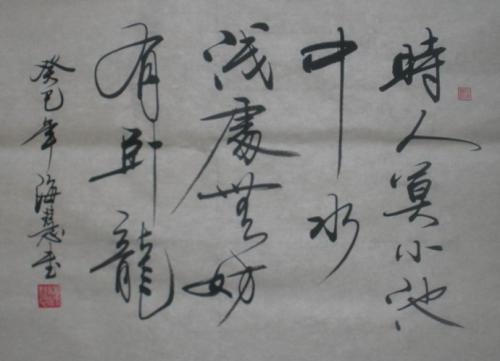 時人莫小池
中水
浅處無妨
有卧龍
癸巳年海慧書